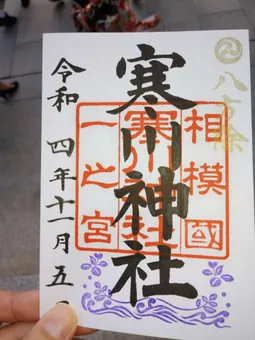 八方除
寒川神社
相模國
寒川神社
一之宮
令和四年十一月五